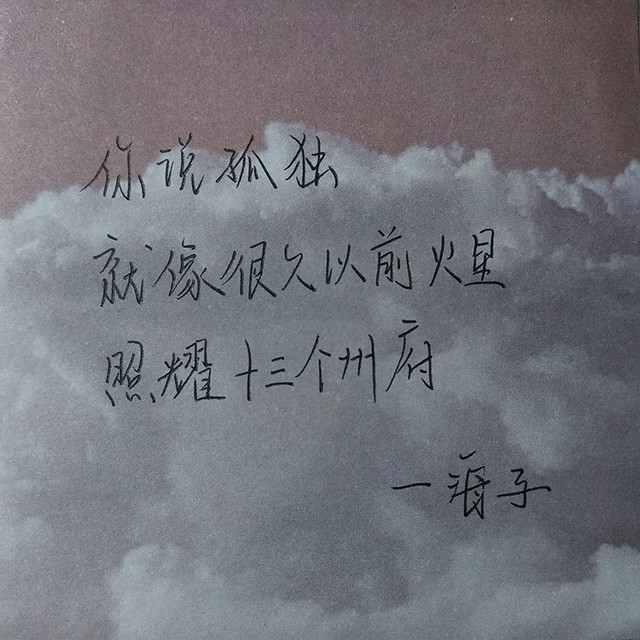 你说孤独
就像很久以前火星
照耀十三个州府
一海子